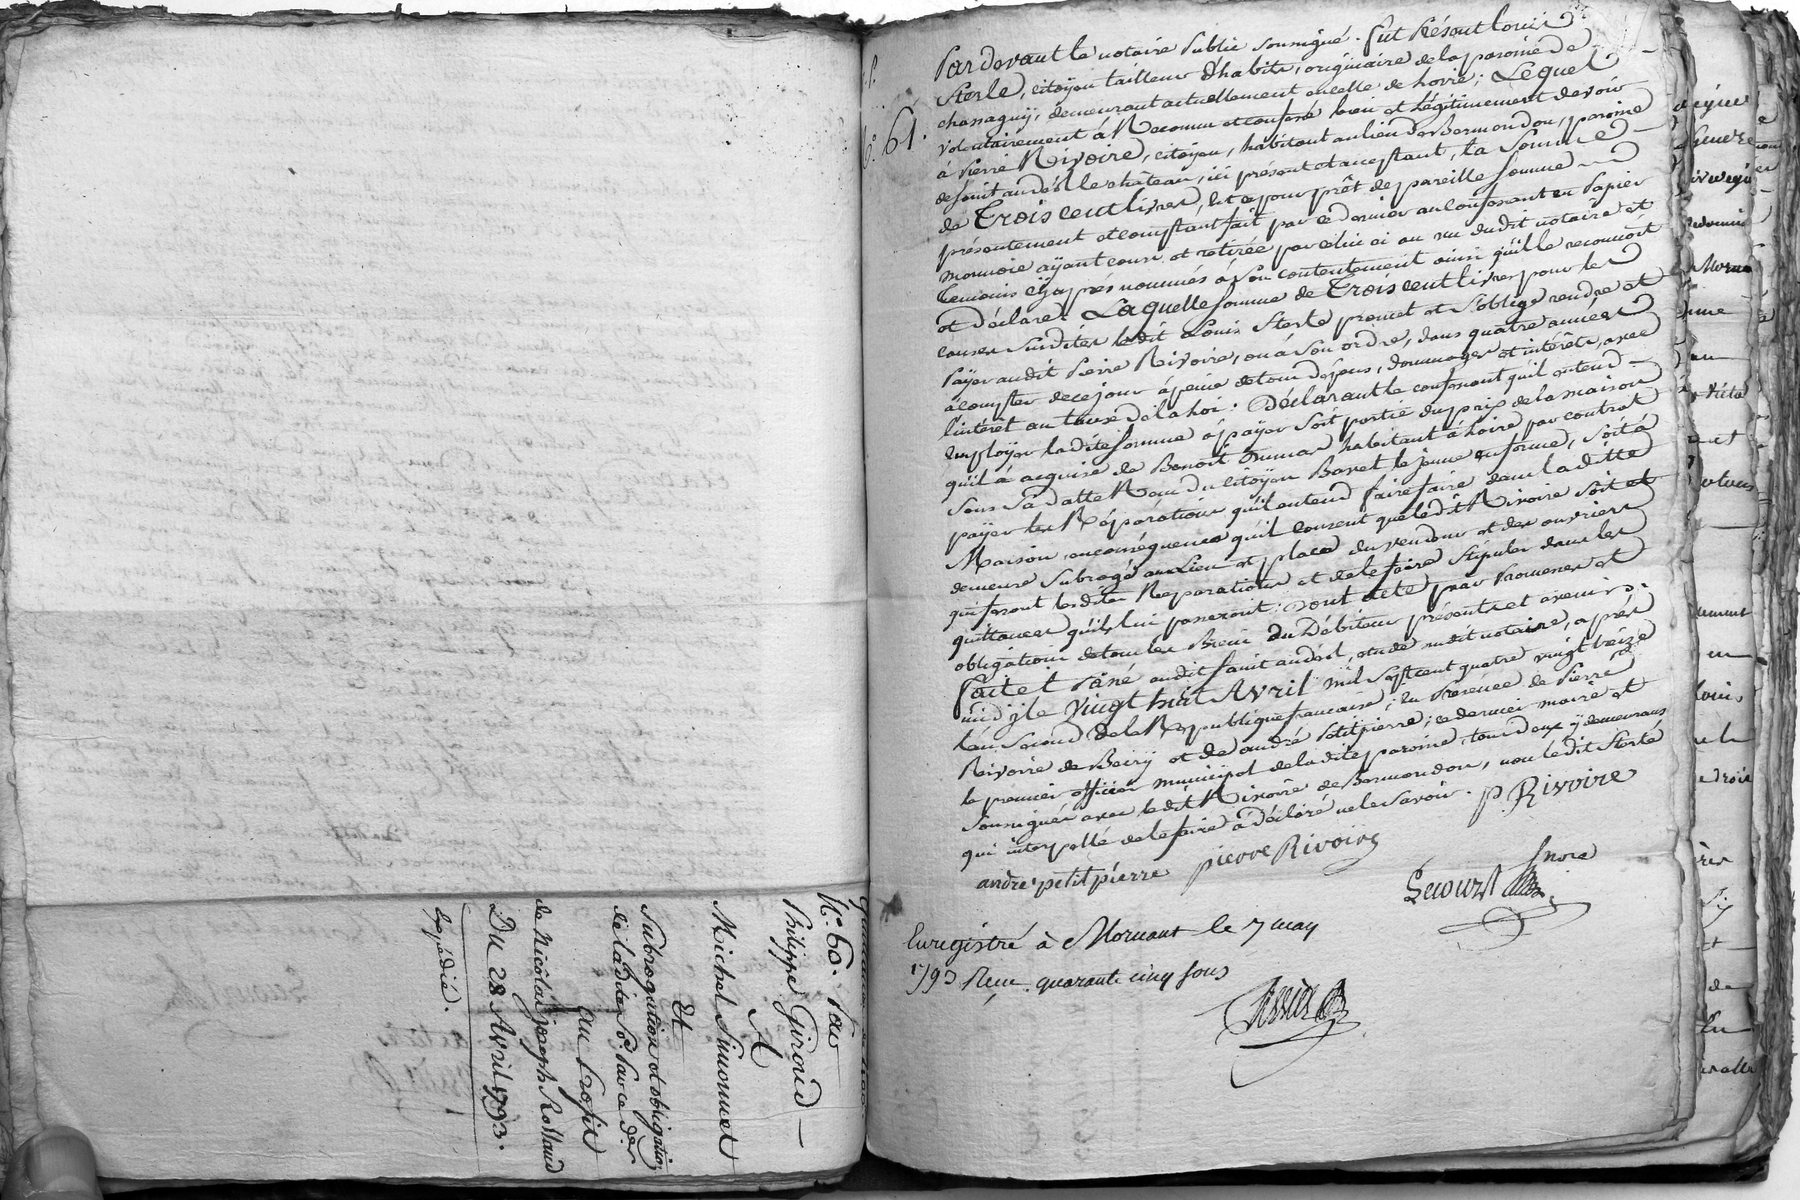 Quittance &
N.o 60. Par
Philippe Giroud
A
Michel Simonnet
Et
Subrogation et obligation
de ladite So.e par ce der.
au Profit
de Nicolas joseph Rolland
Du 28 Avril 1793.
Expédié.
N.o 61.
Pardevant le notaire Public soussigné. fut Présent Louis
Sterle, citoyen tailleur d'habits, originaire de la paroisse de
chassagny, demeurant actuellement en celle de Loire; Lequel
volontairement à Reconnu et confessé bien et légitimement devoir
à Pierre Rivoire, citoyen, habitant au lieu de Bermondon, paroisse
de saint andéol le château, ici présent et acceptant, la Somme
de Trois cent livres, et ce pour prêt de pareille somme
présentement et comptant fait par ce dernier au Confessant en Papier
monnoie ayant cours et retirée par celui ci au vu dudit notaire et
temoins cy après nommés à son contentement ainsi qu'il le reconnoit
et déclare. Laquelle somme de Trois cent livres pour les
causes susdites ledit Louis Sterle promet et S'oblige rendre et
Payer audit Pierre Rivoire, ou à son ordre, dans quatre années
à compter de ce jour à peine de tous dépens, dommages et intérêts, avec
l'intérêt au taux de la Loi: Déclarant le confessant qu'il entend
employer ladite somme à payer soit partie du prix de la maison
qu'il à acquise de Benoit habitant à Loire par contrat
sous Sa datte Reçu du citoyen Baret le jeune en forme, soit à
payer les Réparations qu'il entend faire faire dans ladite
Maison, en conséquence qu'il consent que ledit Rivoire soit et
demeure Subrogé au Lieu et place du vendeur et des ouvriers
qui feront lesdites Réparations et de le faire Stipuler dans les
quittances qu'ils lui passeront: Dont acte par Promesses et
obligations de tous les Biens du Débiteur présents et avenirs.
Fait et Passé audit saint andéol, etude dudit notaire, après
midy le vingt huit Avril mil sept cent quatre vingt treize
l'an Second de la République française; En Présence de Pierre
Rivoire de Beiry et de andré Petitpierre; ce dernier maire et
le premier officier municipal de ladite paroisse, tous deux y demeurans
Soussignés avec ledit Rivoire de Bermondon, non ledit Sterle
qui interpellé de le faire à Déclaré ne le Savoir.
P. Rivoire
andre petit pierre pierre Rivoire
Secourt
Enregistré à Mornant le 7 may
1793 Reçu quarante cinq sous